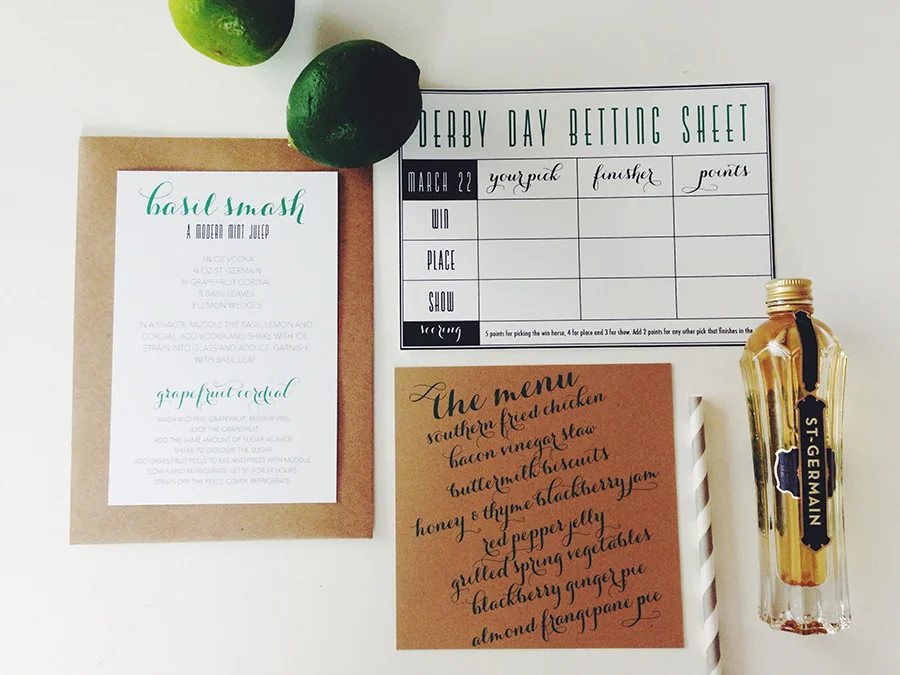 basil smash
A MODERN MINT JULEP
OZ VODKA
OZ ST GERMAIN
GRAPEFRUIT CORDIAL
5 BASIL LEAVES
LEMON WEDGES
IN A SHAKER, MUDDLE THE BASIL, LEMON AND
CORDIAL. ADD VODKA AND SHAKE WITH ICE.
STRAIN INTO GLASS AND ADD ICE. GARNISH
WITH BASIL LEAF
grapefruit cordial
WASH AND PEEL GRAPEFRUIT. RESERVE PEEL
JUICE THE GRAPEFRUIT
ADD THE SAME AMOUNT OF SUGAR AS JUICE
SHAKE TO DISSOLVE THE SUGAR
ADD GRAPEFRUIT PEELS TO MIX AND PRESS WITH MUDDLE
COVER AND REFRIGERATE. LET SIT FOR 24 HOURS
STRAIN OFF THE PEELS, COVER, REFRIGERATE
DERBY DAY BETTING SHEET
MARCH 22 your pick finisher points
WIN
PLACE
SHOW
scoring 5 points for picking the win horse, 4 for place and 3 for show. Add 2 points for any other pick that finishes in the
the menu
southern fried chicken
bacon vinegar slaw
buttermilk biscuits
honey & thyme blackberry jam
red pepper jelly
grilled spring vegetables
blackberry ginger pie
almond frangipane pie
ST-GERMAIN